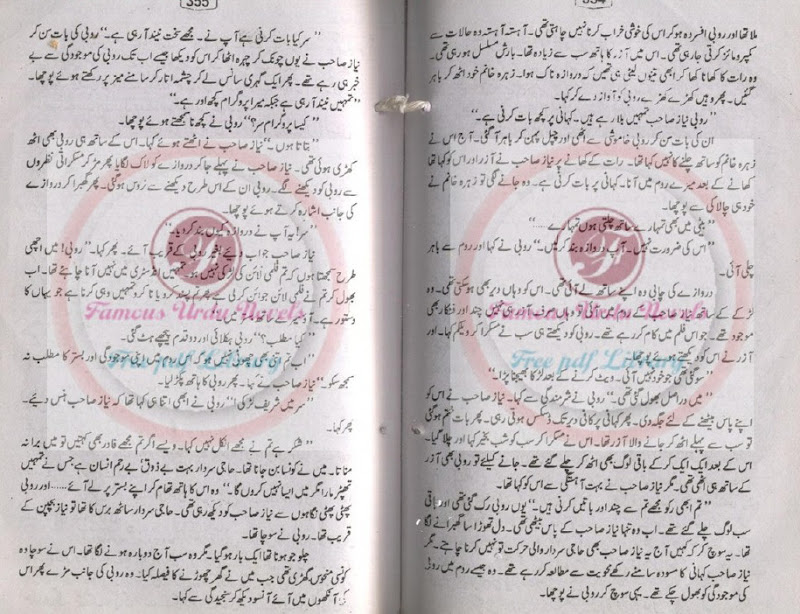 354
ملا تھا اور روبی افسردہ ہو کر اس کی خوشی خراب کرنا نہیں چاہتی تھی۔ آہستہ آہستہ وہ حالات سے
کمپرومائز کرتی جا رہی تھی۔ اس میں آزر کا ہاتھ سب سے زیادہ تھا۔ بارش مسلسل ہو رہی تھی۔
وہ رات کا کھانا کھا کر ابھی تینوں لیٹی ہی تھیں کہ دروازہ ناک ہوا۔ زہرہ خانم خود اٹھ کر باہر
گئیں۔ پھر وہیں کھڑے کھڑے روبی کو آواز دے کر کہا۔
"روبی نیاز صاحب تمہیں بلا رہے ہیں۔ کہانی پر کچھ بات کرنی ہے۔"
ان کی بات سن کر روبی خاموشی سے اٹھی اور چپل پہن کر باہر آ گئی۔ آج اس نے
زہرہ خانم کو ساتھ چلنے کا نہیں کہا تھا۔ رات کے کھانے پر نیاز صاحب نے آزر اور اس کو کہا تھا
کھانے کے بعد میرے روم میں آنا۔ کہانی پر بات کرنی ہے۔ وہ جانے لگی تو زہرہ خانم نے
خود ہی چالاکی سے پوچھا۔
"بیٹی میں بھی تمہارے ساتھ چلتی ہوں تمہارے ......"
"اس کی ضرورت نہیں۔ آپ دروازہ بند کر لیں۔" روبی نے کہا اور روم سے باہر
چلی آئی۔
دروازے کی چابی وہ اپنے ساتھ لے آئی تھی۔ اس کو وہاں دیر بھی ہو سکتی تھی۔ وہ
لڑکے کے ساتھ نیاز صاحب کے چند اور فنکار بھی
موجود تھے۔ جو اس فلم میں کام کر رہے تھے۔ روبی کو دیکھتے ہی سب نے مسکرا کر ویلکم کہا۔ اور
آزر نے اس کو دیکھتے ہوئے پوچھا۔
"سو گئی تھی جو خود نہیں آئی۔ ویٹ کرنے کے بعد لڑکا بھیجنا پڑا۔"
"میں دراصل بھول گئی تھی۔" روبی نے شرمندگی سے کہا۔ نیاز صاحب نے اس کو
اپنے پاس بیٹھنے کے لئے جگہ دی۔ پھر کہانی پر کافی دیر تک ڈسکس ہوتی رہی۔ پھر بات ختم ہو گئی
تو سب سے پہلے اٹھ کر جانے والا آزر تھا۔ اس نے مسکرا کر سب کو شب بخیر کہا اور چلا گیا۔
اس کے بعد ایک ایک کر کے باقی لوگ بھی اٹھ کر چلے گئے تھے۔ جانے کیلئے تو روبی بھی آزر
کے ساتھ ہی اٹھی تھی۔ مگر نیاز صاحب نے بہت آہستگی سے اس کو کہا تھا۔
"تم ابھی رکو مجھے تم سے چند اور باتیں کرنی ہیں۔" یوں روبی رک گئی تھی اور باقی
سب لوگ چلے گئے تھے۔ اب وہ تنہا نیاز صاحب کے پاس بیٹھی تھی۔ دل تھوڑا سا گھبرانے لگا
تھا۔ یہ سوچ کر کہ کہیں آج یہ نیاز صاحب بھی حاجی سردار والی حرکت تو نہیں کرنا چاہتے۔ مگر
نیاز صاحب کہانی کا مسودہ سامنے رکھے محویت سے مطالعہ کر رہے تھے۔ وہ جیسے روم میں روبی
کی موجودگی کو بھول چکے تھے۔ یہی سوچ کر روبی نے پوچھا۔
355
"سر کیا بات کرنی ہے آپ نے۔ مجھے سخت نیند آ رہی ہے۔" روبی کی بات سن کر
نیاز صاحب نے یوں چونک کر چہرہ اٹھا کر اس کو دیکھا جیسے اب تک روبی کی موجودگی سے بے
خبر ہی رہے تھے۔ پھر ایک گہری سانس لے کر چشمہ اتار کر سامنے میز پر رکھتے ہوئے پوچھا۔
"تمہیں نیند آ رہی ہے جبکہ میرا پروگرام کچھ اور ہے۔"
"کیسا پروگرام سر؟" روبی نے کچھ نا سمجھتے ہوئے پوچھا۔
"بتاتا ہوں۔" نیاز صاحب نے اٹھتے ہوئے کہا۔ اس کے ساتھ ہی روبی بھی اٹھ
کھڑی ہوئی تھی۔ نیاز صاحب نے پہلے جا کر دروازے کو لاک لگایا پھر مڑ کر مسکراتی نظروں
سے روبی کو دیکھنے لگے۔ روبی ان کے اس طرح دیکھنے سے نروس ہو گئی۔ پھر گھبرا کر دروازے
کی جانب اشارہ کرتے ہوئے پوچھا۔
"سر! یہ آپ نے دروازہ کیوں بند کر دیا۔"
نیاز صاحب جواب دیئے بغیر روبی کے قریب آئے۔ پھر کہا۔ "روبی! میں اچھی
طرح سمجھتا ہوں کہ تم فلمی لائن کی لڑکی نہیں ہو۔ تمہیں انڈسٹری میں نہیں آنا چاہئے تھا۔ اب
بھول کر تم نے فلمی لائن جوائن کر لی ہے پھر تم پسند کرو یا نا کرو تمہیں وہی کرنا ہے جو یہاں کا
دستور ہے۔
"کیا مطلب؟" روبی ہکلائی اور دو قدم پیچھے ہٹ گئی۔
"اب تم اتنی بھی بھولی نہیں ہو کہ اس روم میں اپنی موجودگی اور بستر کا مطلب نہ
سمجھ سکو۔" نیاز صاحب نے کہا۔ پھر روبی کا ہاتھ پکڑ لیا۔
"سر میں شریف لڑکی!" روبی نے ابھی اتنا ہی کہا تھا کہ نیاز صاحب ہنس دیئے۔
پھر کہا۔
"شکر ہے تم نے مجھے انکل نہیں کہا۔ ویسے اگر تم مجھے فادر بھی کہتیں تو میں برا نہ
مناتا۔ میں نے کونسا بن جانا تھا۔ حاجی سردار بہت بے ذوق بے رحم انسان ہے جس نے تمہیں
تھپڑ مارا مگر میں ایسا نہیں کروں گا۔" وہ اس کا ہاتھ تھام کر اپنے بستر پر لے آئے...... اور روبی
پھٹی پھٹی نگاہوں سے نیاز صاحب کو دیکھ رہی تھی۔ حاجی سردار ساٹھ برس کا تھا تو نیاز پچپن کے
قریب تھا۔ روبی نے سوچا تھا۔
چلو جو ہونا تھا ایک بار ہو گیا۔ مگر وہ سب آج دوبارہ ہونے لگا تھا۔ اس نے سوچا وہ
کونسی منحوس گھڑی تھی جب میں نے گھر چھوڑنے کا فیصلہ کیا۔ وہ روبی کی جانب مڑے پھر اس
کی آنکھوں میں آئے آنسو دیکھ کر سنجیدگی سے کہا۔
Famous Urdu Novels
Free pdf Library
Famous Urdu Novels
Free pdf Library